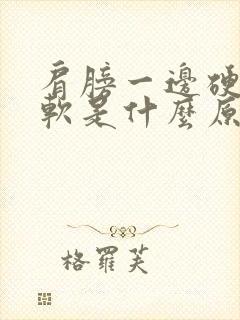 肩膀一邊硬
軟是什麼原
格羅芙